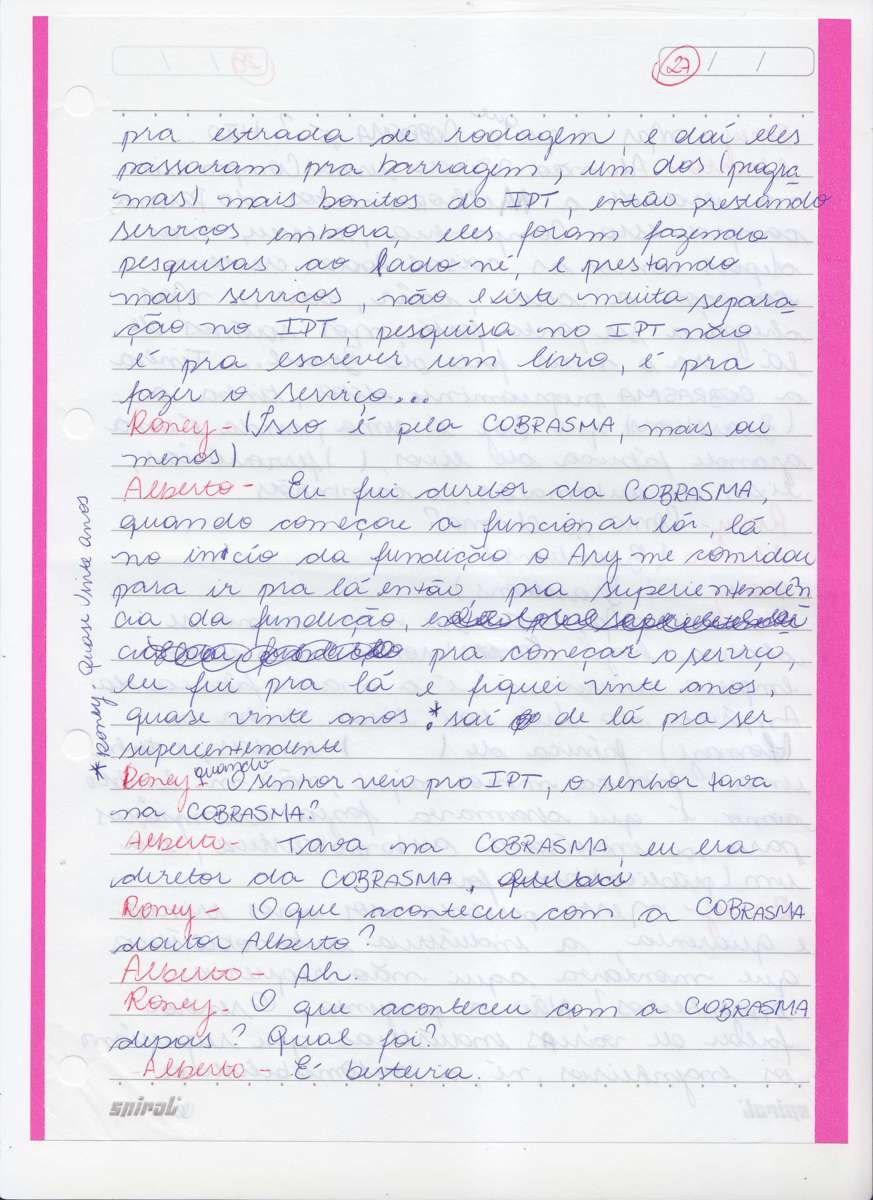 27 / /
pra estrada de rodagem, e daí eles
passaram pra barragem, um dos (progra
mas) mais bonitos do IPT, então prestando
serviços, embora, eles foram fazendo
pesquisas ao lado né, e prestando
mais serviços, não existe muita separa
ção no IPT, pesquisa no IPT não
é pra escrever um livro, é pra
fazer o serviço...
Roney - (Isso é pela COBRASMA, mais ou
menos)
Alberto - Eu fui diretor da COBRASMA,
quando começou a funcionar lá, lá
no início da fundição o Ary me convidou
para ir pra lá então, pra superientendên
cia da fundição,
pra começar o serviço,
eu fui pra lá e fiquei vinte anos,
quase vinte anos.* saí de lá pra ser
superientendente
Roney - quando O senhor veio pro IPT, o senhor tava
na COBRASMA?
Alberto - Tava na COBRASMA, eu era
diretor da COBRASMA,
Roney - O que aconteceu com a COBRASMA
doutor Alberto?
Alberto - Ah.
Roney - O que aconteceu com a COBRASMA
depois? Qual foi?
Alberto - É besteira.
* Roney - Quase vinte anos
spiral